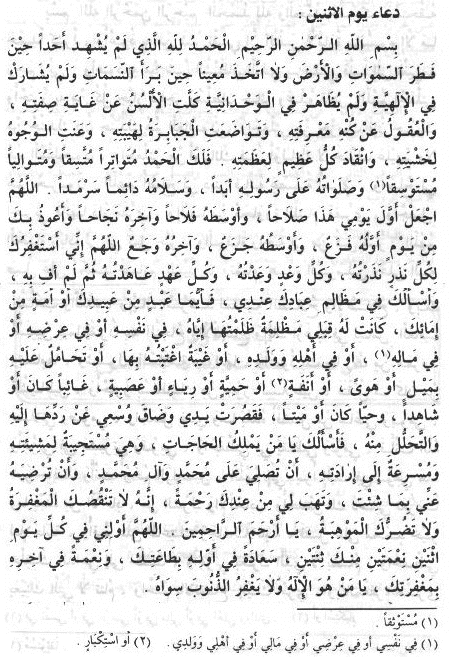 دعاء يوم الاثنين :
بِسْمِ اللهِ الرَّحْمٰنِ الرَّحِيْمِ الْحَمْدُ لِلّٰهِ الَّذِي لَمْ يُشْهِدْ أَحَداً حِيْنَ
فَطَرَ السَّمٰوَاتِ وَالْأَرْضَ وَلَا اتَّخَذَ مُعِيناً حِينَ بَرَأَ النَّسَمَاتِ وَلَمْ يُشَارَكْ
فِي الْإِلٰهِيَّةِ وَلَمْ يُظَاهَرْ فِي الْوَحْدَانِيَّةِ كَلَّتِ الْأَلْسُنُ عَنْ غَايَةِ صِفَتِهِ ،
وَالْعُقُولُ عَنْ كُنْهِ مَعْرِفَتِهِ ، وَتَوَاضَعَتِ الْجَبَابِرَةُ لِهَيْبَتِهِ ، وَعَنَتِ الْوُجُوهُ
لِخَشْيَتِهِ ، وَانْقَادَ كُلُّ عَظِيمٍ لِعَظَمَتِهِ فَلَكَ الْحَمْدُ مُتَوَاتِراً مُتَّسِقاً وَمُتَوَالِياً
مُسْتَوْسِقاً (١) وَصَلَوَاتُهُ عَلَى رَسُولِهِ أَبَداً ، وَسَلَامُهُ دَائِماً سَرْمَداً . اللّٰهُمَّ
اجْعَلْ أَوَّلَ يَوْمِي هَذَا صَلَاحاً ، وَأَوْسَطَهُ فَلَاحاً وَآخِرَهُ نَجَاحاً وَأَعُوذُ بِكَ
مِنْ يَوْمٍ أَوَّلُهُ فَزَعٌ ، وَأَوْسَطُهُ جَزَعٌ ، وَآخِرُهُ وَجَعٌ اللّٰهُمَّ إِنِّي أَسْتَغْفِرُكَ
لِكُلِّ نَذْرٍ نَذَرْتُهُ ، وَكُلِّ وَعْدٍ وَعَدْتُهُ ، وَكُلِّ عَهْدٍ عَاهَدْتُهُ ثُمَّ لَمْ أَفِ بِهِ ،
وَأَسْأَلُكَ فِي مَظَالِمِ عِبَادِكَ عِنْدِي ، فَأَيُّمَا عَبْدٍ مِنْ عَبِيدِكَ أَوْ أَمَةٍ مِنْ
إِمَائِكَ ، كَانَتْ لَهُ قِبَلِي مَظْلِمَةٌ ظَلَمْتُهَا إِيَّاهُ ، فِي نَفْسِهِ أَوْ فِي عِرْضِهِ أَوْ
فِي مَالِهِ (١) ، أَوْ فِي أَهْلِهِ وَوَلَدِهِ ، أَوْ غَيْبَةٌ اغْتَبْتُهُ بِهَا ، أَوْ تَحَامُلٌ عَلَيْهِ
بِمَيْلٍ أَوْ هَوىً ، أَوْ أَنَفَةٍ (٢) أَوْ حَمِيَّةٍ أَوْ رِيَاءٍ أَوْ عَصَبِيَّةٍ ، غَائِباً كَانَ أَوْ
شَاهِداً ، وَحَيّاً كَانَ أَوْ مَيْتاً ، فَقَصُرَتْ يَدِي وَضَاقَ وُسْعِي عَنْ رَدِّهَا إِلَيْهِ
وَالتَّحَلُّلِ مِنْهُ ، فَأَسْأَلُكَ يَا مَنْ يَمْلِكُ الْحَاجَاتِ ، وَهِيَ مُسْتَجِيبَةٌ لِمَشِيئَتِهِ
وَمُسْرِعَةٌ إِلَى إِرَادَتِهِ ، أَنْ تُصَلِّيَ عَلَى مُحَمَّدٍ وَآلِ مُحَمَّدٍ ، وَأَنْ تُرْضِيَهُ
عَنِّي بِمَا شِئْتَ ، وَتَهَبَ لِي مِنْ عِنْدِكَ رَحْمَةً ، إِنَّهُ لَا تَنْقُصُكَ الْمَغْفِرَةُ
وَلَا تَضُرُّكَ الْمَوْهِبَةُ ، يَا أَرْحَمَ الرَّاحِمِينَ . اللّٰهُمَّ أَوْلِنِي فِي كُلِّ يَوْمِ
اثْنَيْنِ نِعْمَتَيْنِ مِنْكَ ثِنْتَيْنِ ، سَعَادَةً فِي أَوَّلِهِ بِطَاعَتِكَ ، وَنِعْمَةً فِي آخِرِهِ
بِمَغْفِرَتِكَ ، يَا مَنْ هُوَ الْإِلٰهُ وَلَا يَغْفِرُ الذُّنُوبَ سِوَاهُ .
(١) مُسْتَوْثِقاً .
(١) فِي نَفْسِي أَو فِي عِرْضِي أَوْ فِي مَالِي أَوْ فِي أَهْلِي وَوَلَدِي . (٢) أَوِ اسْتِكْبَارٍ .